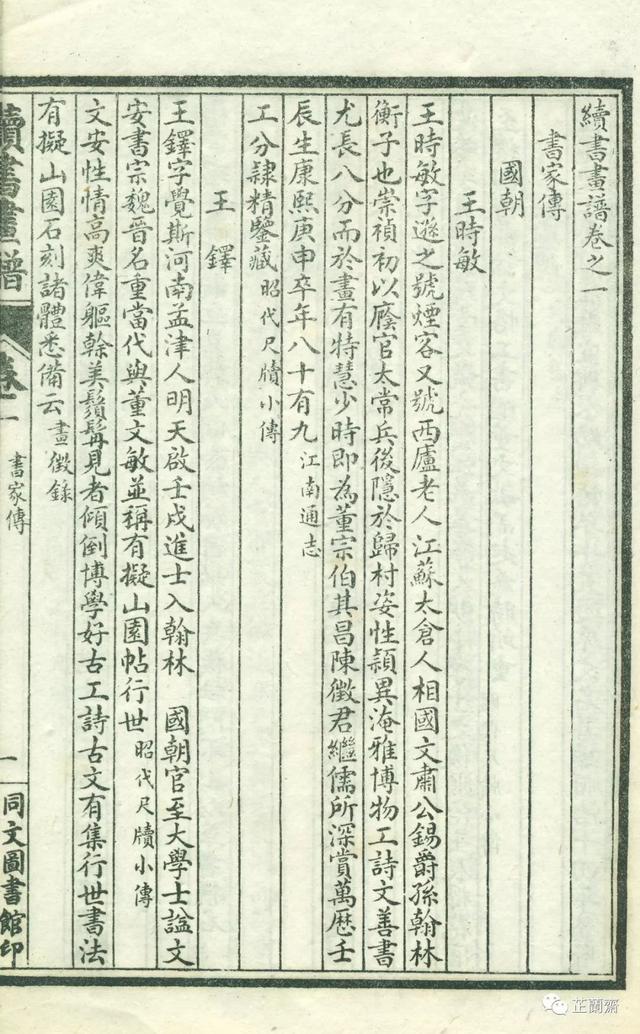 續書畫譜卷之一
書家傳
國朝
王時敏
王時敏字遜之號煙客又號西廬老人江蘇太倉人相國文肅公錫爵孫翰林
衡子也崇禎初以廕官太常兵後隱於歸村姿性穎異淹雅博物工詩文善書
尤長八分而於畫有特慧少時即為董宗伯其昌陳徵君繼儒所深賞萬歷壬
辰生康熙庚申卒年八十有九江南通志
工分隷精鑒藏昭代尺牘小傳
王鐸
王鐸字覺斯河南孟津人明天啟壬戌進士入翰林 國朝官至大學士諡文
安書宗魏晉名重當代與董文敏並稱有擬山園帖行世昭代尺牘小傳
文安性情高爽偉軀榦美鬚髯見者傾倒博學好古工詩古文有集行世書法
有擬山園石刻諸體悉備云畫徵錄
續書畫譜 卷一 書家傳 一 同文圖書館印
芷蘭齋